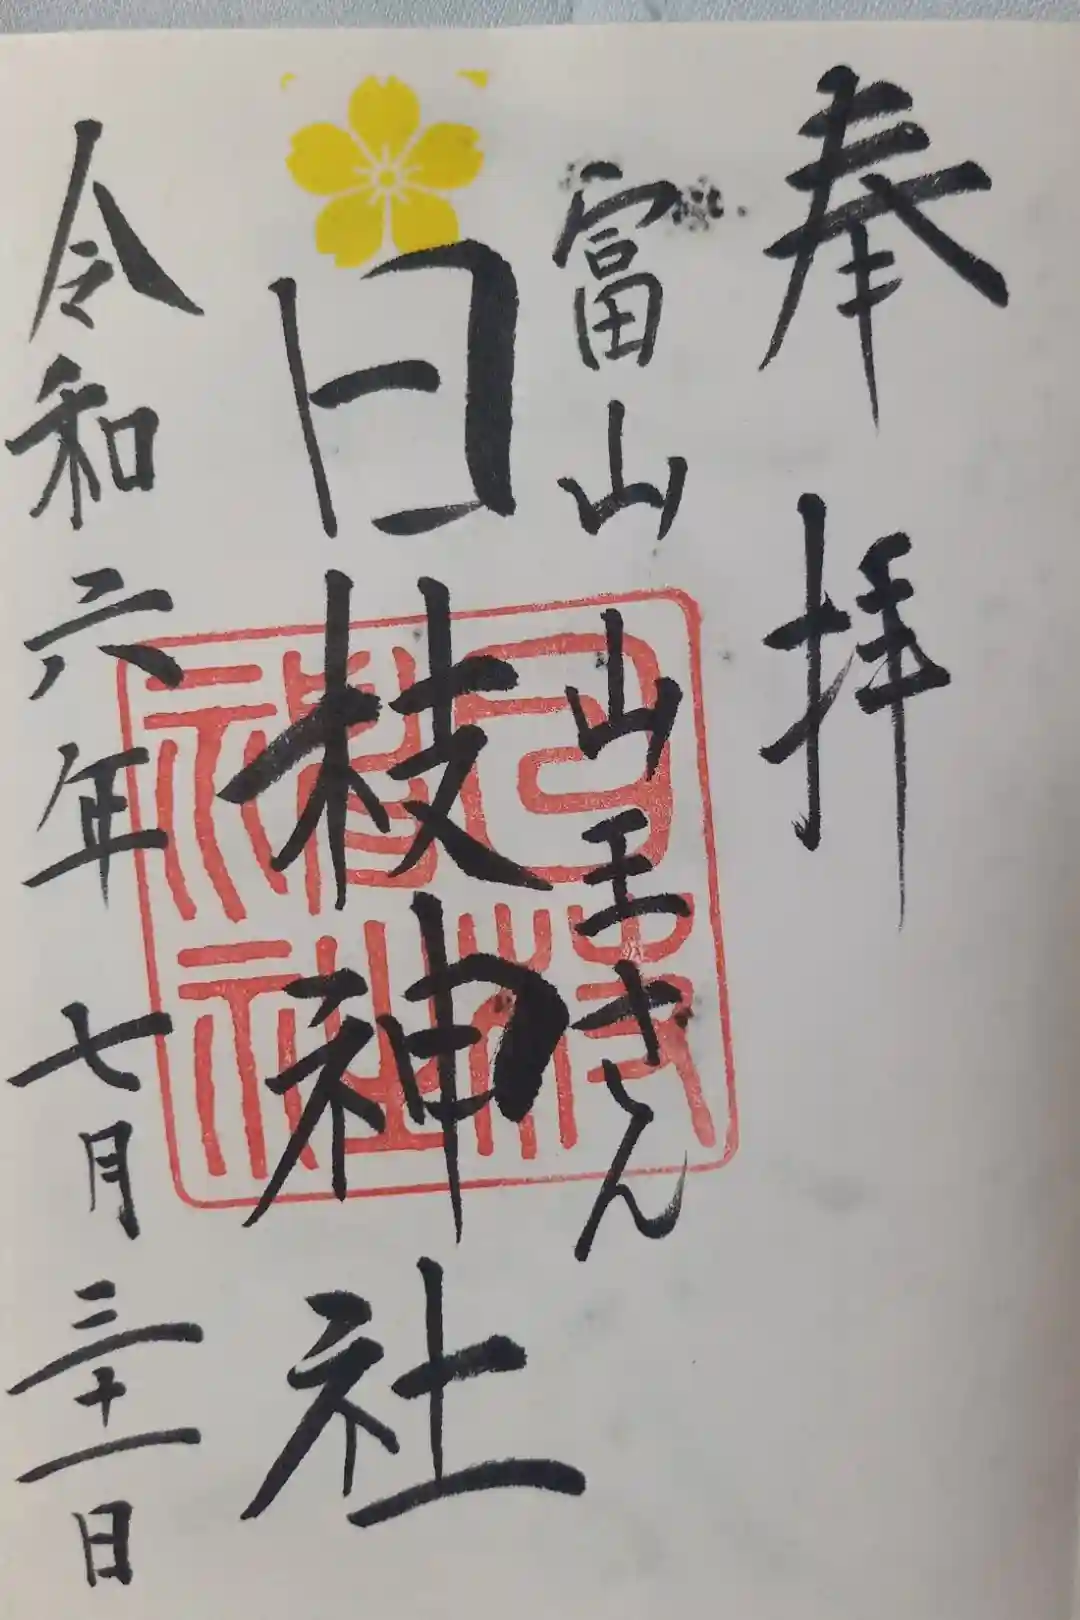 奉拝
富山山王さん
日枝神社
令和六年七月三十一日